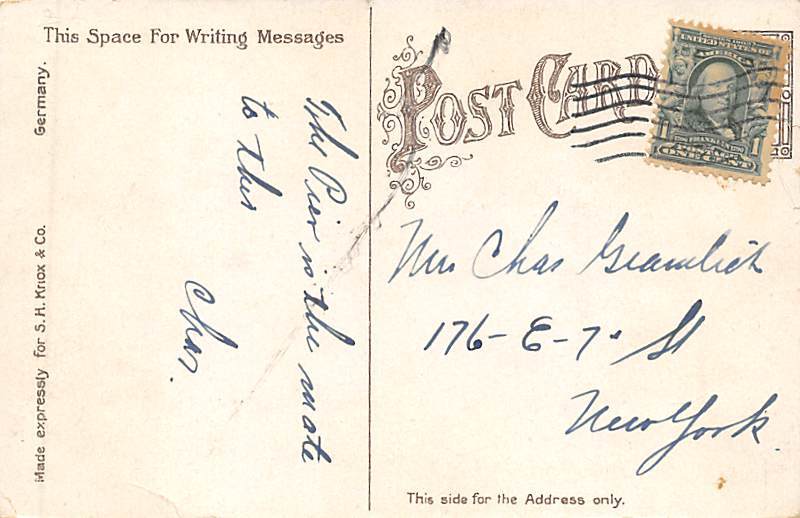 This Space For Writing Messages
The Pier is the mate
to this
Chas.
Made expressly for S. H. Knox & Co. Germany.
POST CARD
UNITED STATES OF
AMERICA
1 FRANKLIN 1
POSTAGE
ONE CENT
Mrs Chas Gramlich
176-E-7. St
New York.
This side for the Address only.